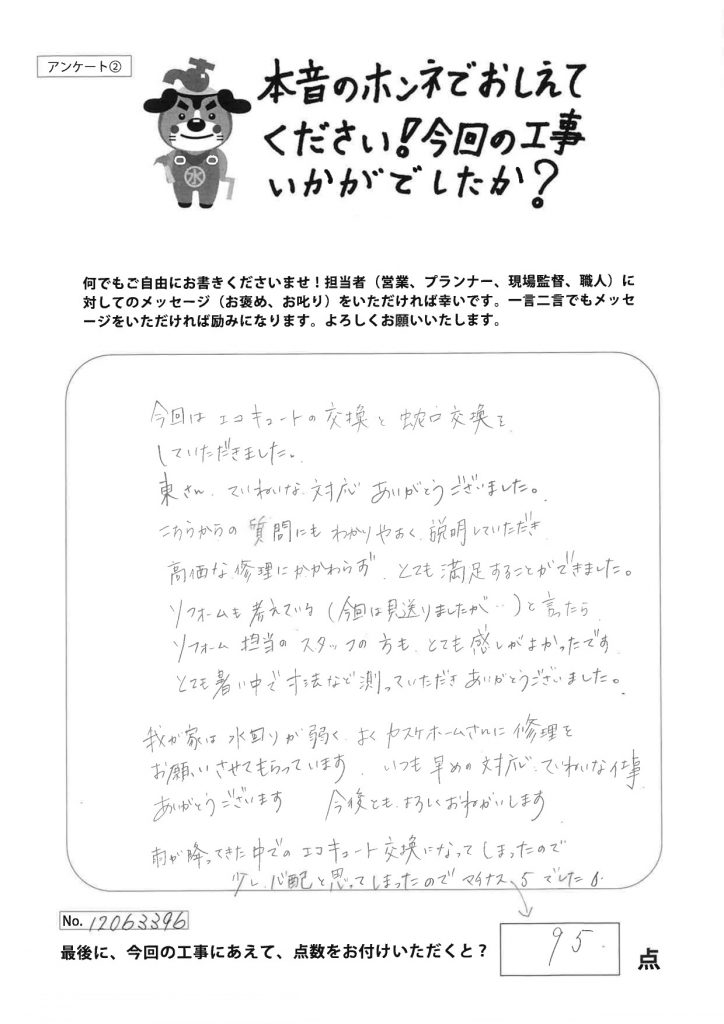 アンケート②
本音のホンネでおしえて
ください!今回の工事
いかがでしたか?
水
何でもご自由にお書きくださいませ!担当者(営業、プランナー、現場監督、職人)に
対してのメッセージ(お褒め、お叱り)をいただければ幸いです。一言二言でもメッセ
ージをいただければ励みになります。よろしくお願いいたします。
今回は エコキュートの交換と 蛇口交換を
していただきました。
東さん、ていねいな対応 ありがとうございました。
こちらからの質問にも わかりやすく、説明していただき
高価な修理にかかわらず、とても満足することができました。
リフォームも考えている(今回は見送りましたが‥)と言ったら
リフォーム担当のスタッフの方も、とても感じがよかったです。
とても暑い中で寸法など測っていただきありがとうございました。
我が家は水回りが弱く、よくヤスケホームさんに修理を
お願いさせてもらっています。いつも早めの対応、ていねいな仕事
ありがとうございます 今後とも、よろしくおねがいします
雨が降ってきた中でのエコキュート交換になってしまったので
少し心配と思ってしまったのでマイナス5でした。
No. 12063396
最後に、今回の工事にあえて、点数をお付けいただくと?
95. 点